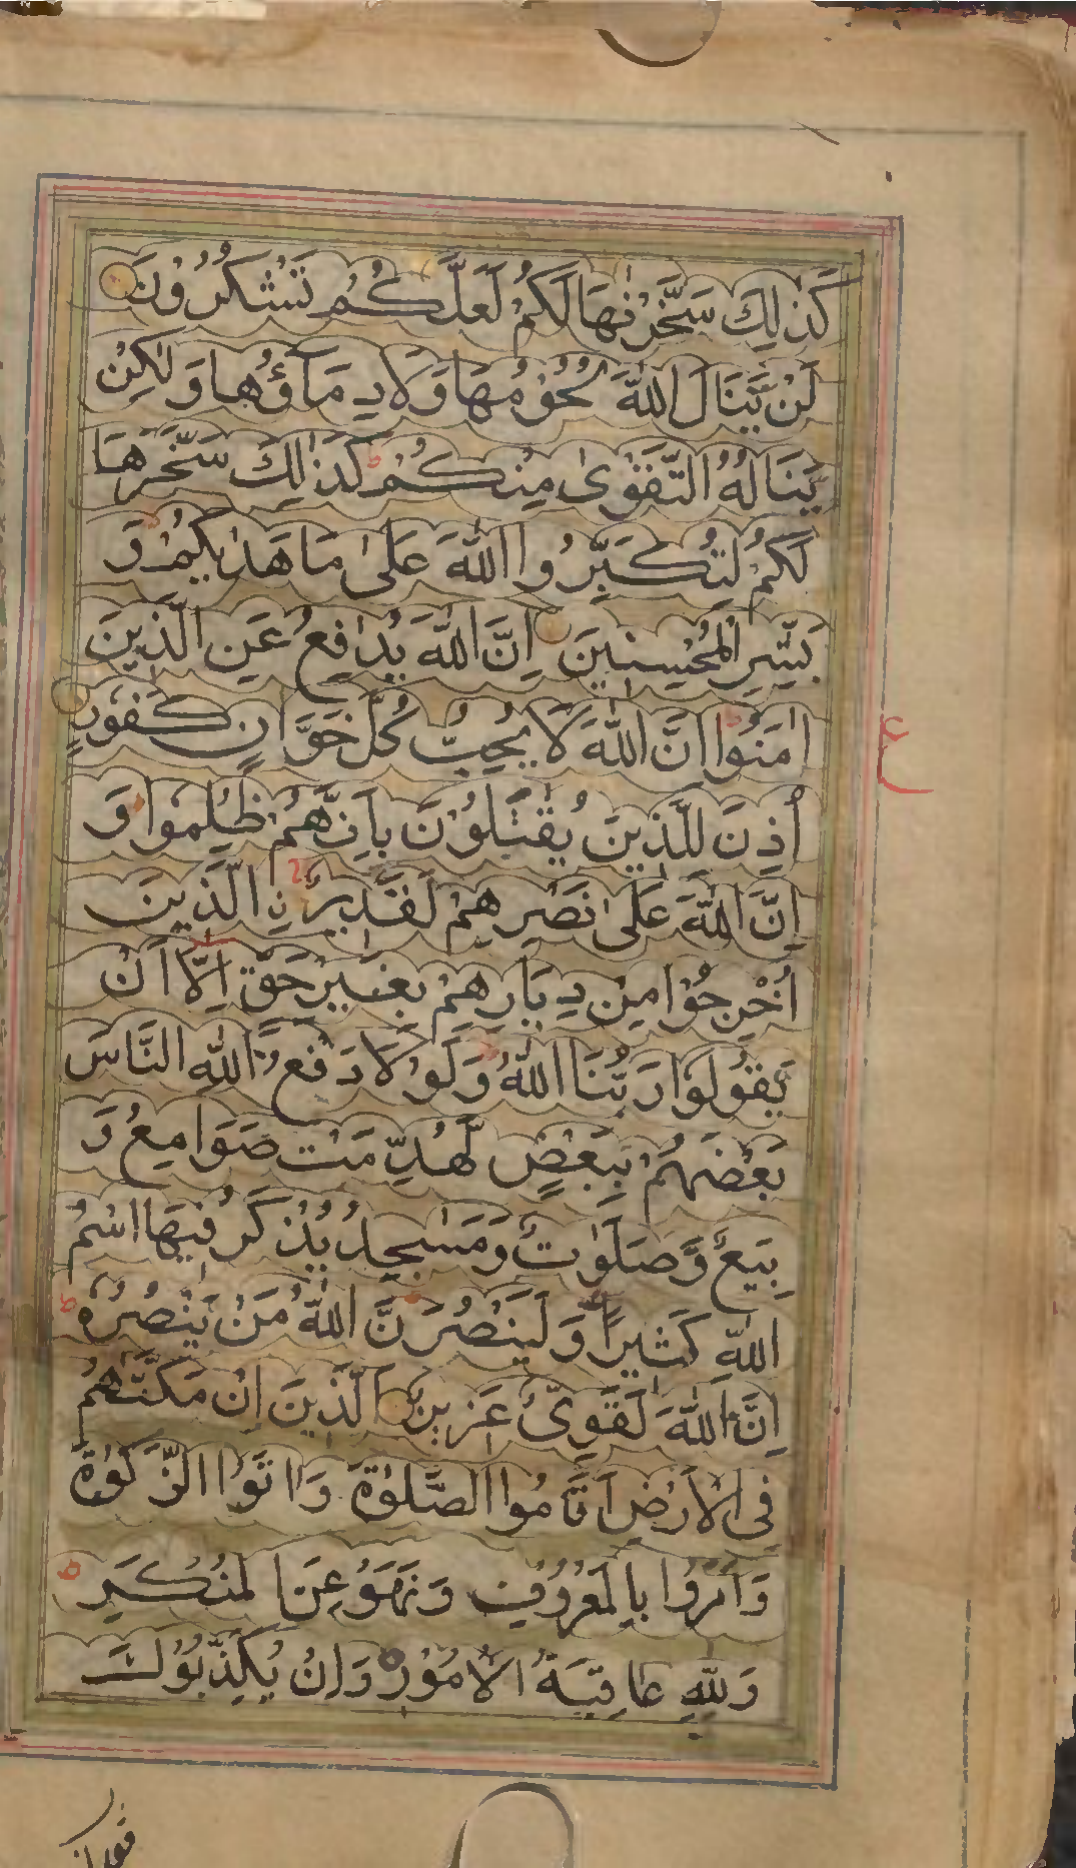 كَذٰلِكَ سَخَّرْنٰهَا لَكُمْ لَعَلَّكُمْ تَشْكُرُوْنَ
لَنْ يَّنَالَ اللّٰهَ لُحُوْمُهَا وَلَا دِمَآؤُهَا وَلٰكِنْ
يَّنَالُهُ التَّقْوٰى مِنْكُمْ ط كَذٰلِكَ سَخَّرَهَا
لَكُمْ لِتُكَبِّرُوا اللّٰهَ عَلٰى مَا هَدٰىكُمْ وَ
بَشِّرِ الْمُحْسِنِيْنَ اِنَّ اللّٰهَ يُدٰفِعُ عَنِ الَّذِيْنَ
اٰمَنُوْا اِنَّ اللّٰهَ لَا يُحِبُّ كُلَّ خَوَّانٍ كَفُوْرٍ
ع
اُذِنَ لِلَّذِيْنَ يُقٰتَلُوْنَ بِاَنَّهُمْ ظُلِمُوْا وَ
اِنَّ اللّٰهَ عَلٰى نَصْرِهِمْ لَقَدِيْرُ نِ الَّذِيْنَ
اُخْرِجُوْا مِنْ دِيَارِهِمْ بِغَيْرِ حَقٍّ اِلَّا اَنْ
يَّقُوْلُوْا رَبُّنَا اللّٰهُ وَلَوْلَا دَفْعُ اللّٰهِ النَّاسَ
بَعْضَهُمْ بِبَعْضٍ لَّهُدِّمَتْ صَوَامِعُ وَ
بِيَعٌ وَّصَلَوٰتٌ وَمَسٰجِدُ يُذْكَرُ فِيْهَا اسْمُ
اللّٰهِ كَثِيْرًا وَلَيَنْصُرَنَّ اللّٰهُ مَنْ يَّنْصُرُهٗ ط
اِنَّ اللّٰهَ لَقَوِىٌّ عَزِيْزٌ اَلَّذِيْنَ اِنْ مَكَّنّٰهُمْ
فِى الْاَرْضِ اَقَامُوا الصَّلٰوةَ وَاٰتَوُا الزَّكٰوةَ
وَاَمَرُوْا بِالْمَعْرُوْفِ وَنَهَوْ عَنِ الْمُنْكَرِ ط
وَلِلّٰهِ عَاقِبَةُ الْاُمُوْرِ وَاِنْ يُكَذِّبُوْكَ